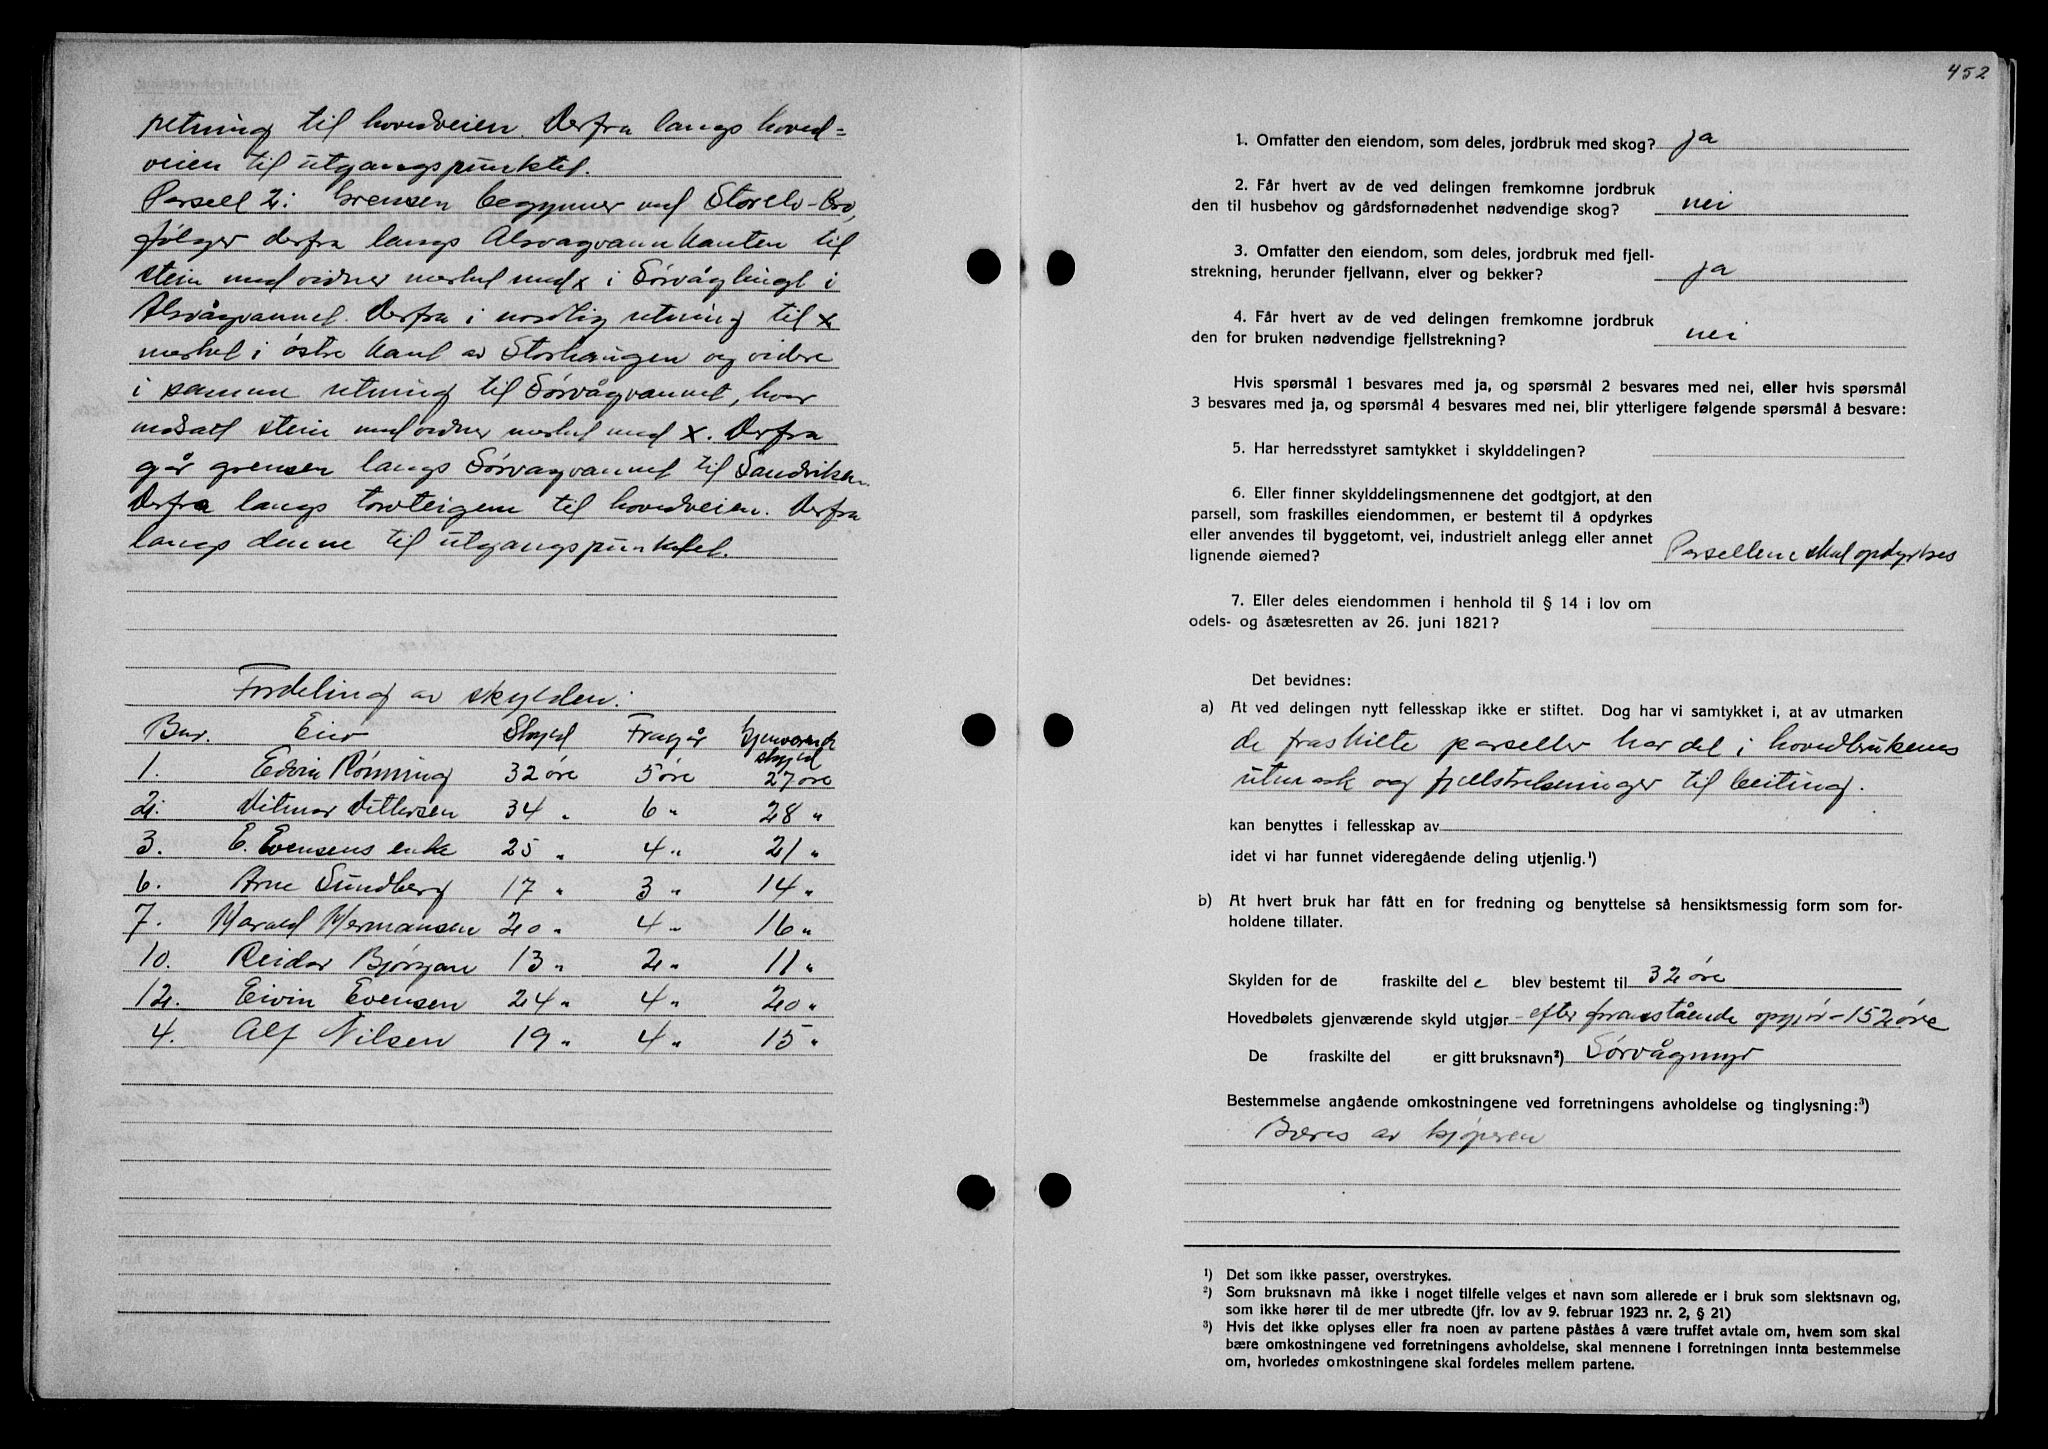 retning til hovedveien. Derfra langs hoved=
veien til utgangspunktet.
Parsell 2: Grensen begynner ved Storelv-Bro,
følger derfra langs Alsvågvannkanten til
stein med vidner merket med x i Sørvågbugt i
Alsvågvannet. Derfra i nordlig retning til x
merket i østre kant av Storhaugen og videre
i samme retning til Sørvågvannet, hvor
nedsatt stein med vidner merket med x. Derfra
går grensen langs Sørvågvannet til Sandviken.
Derfra langs torvteigene til hovedveien. Derfra
langs denne til utgangspunktet.
Fordeling av skylden:
Bnr. Eier Skyld Fragår Gjenværende skyld
1. Edvin Rønning 32 øre 5 øre 27 øre
2. Ditmar Dittersen 34 " 6 " 28 "
3. E. Evensens enke 25 " 4 " 21 "
6. Arne Sundberg 17 " 3 " 14 "
7. Harald Hermansen 20 " 4 " 16 "
10. Reidar Bjørgan 13 " 2 " 11 "
12. Eivin Evensen 24 " 4 " 20 "
4. Alf Nilsen 19 " 4 " 15 "
452
1. Omfatter den eiendom, som deles, jordbruk med skog? ja
2. Får hvert av de ved delingen fremkomne jordbruk
den til husbehov og gårdsfornødenhet nødvendige skog? nei
3. Omfatter den eiendom, som deles, jordbruk med fjell-
strekning, herunder fjellvann, elver og bekker? ja
4. Får hvert av de ved delingen fremkomne jordbruk
den for bruken nødvendige fjellstrekning? nei
Hvis spørsmål 1 besvares med ja, og spørsmål 2 besvares med nei, eller hvis spørsmål
3 besvares med ja, og spørsmål 4 besvares med nei, blir ytterligere følgende spørsmål å besvare:
5. Har herredsstyret samtykket i skylddelingen?
6. Eller finner skylddelingsmennene det godtgjort, at den
parsell, som fraskilles eiendommen, er bestemt til å opdyrkes
eller anvendes til byggetomt, vei, industrielt anlegg eller annet
lignende øiemed? Parsellene skal opdyrkes
7. Eller deles eiendommen i henhold til § 14 i lov om
odels- og åsætesretten av 26. juni 1821?
Det bevidnes:
a) At ved delingen nytt fellesskap ikke er stiftet. Dog har vi samtykket i, at av utmarken
de fraskilte parseller har del i hovedbrukenes
utmark og fjellstrekninger til beiting.
kan benyttes i fellesskap av
idet vi har funnet videregående deling utjenlig.¹)
b) At hvert bruk har fått en for fredning og benyttelse så hensiktsmessig form som for-
holdene tillater.
Skylden for de fraskilte del e blev bestemt til 32 øre
Hovedbølets gjenværende skyld utgjør efter foranstående opgjør - 152 øre
De fraskilte del er gitt bruksnavn²) Sørvågmyr
Bestemmelse angående omkostningene ved forretningens avholdelse og tinglysning:³)
Bæres av kjøperen
¹) Det som ikke passer, overstrykes.
²) Som bruksnavn må ikke i noget tilfelle velges et navn som allerede er i bruk som slektsnavn og,
som ikke hører til de mer utbredte (jfr. lov av 9. februar 1923 nr. 2, § 21)
³) Hvis det ikke oplyses eller fra noen av partene påståes å være truffet avtale om, hvem som skal
bære omkostningene ved forretningens avholdelse, skal mennene i forretningen innta bestemmelse
om, hvorledes omkostningene skal fordeles mellem partene.